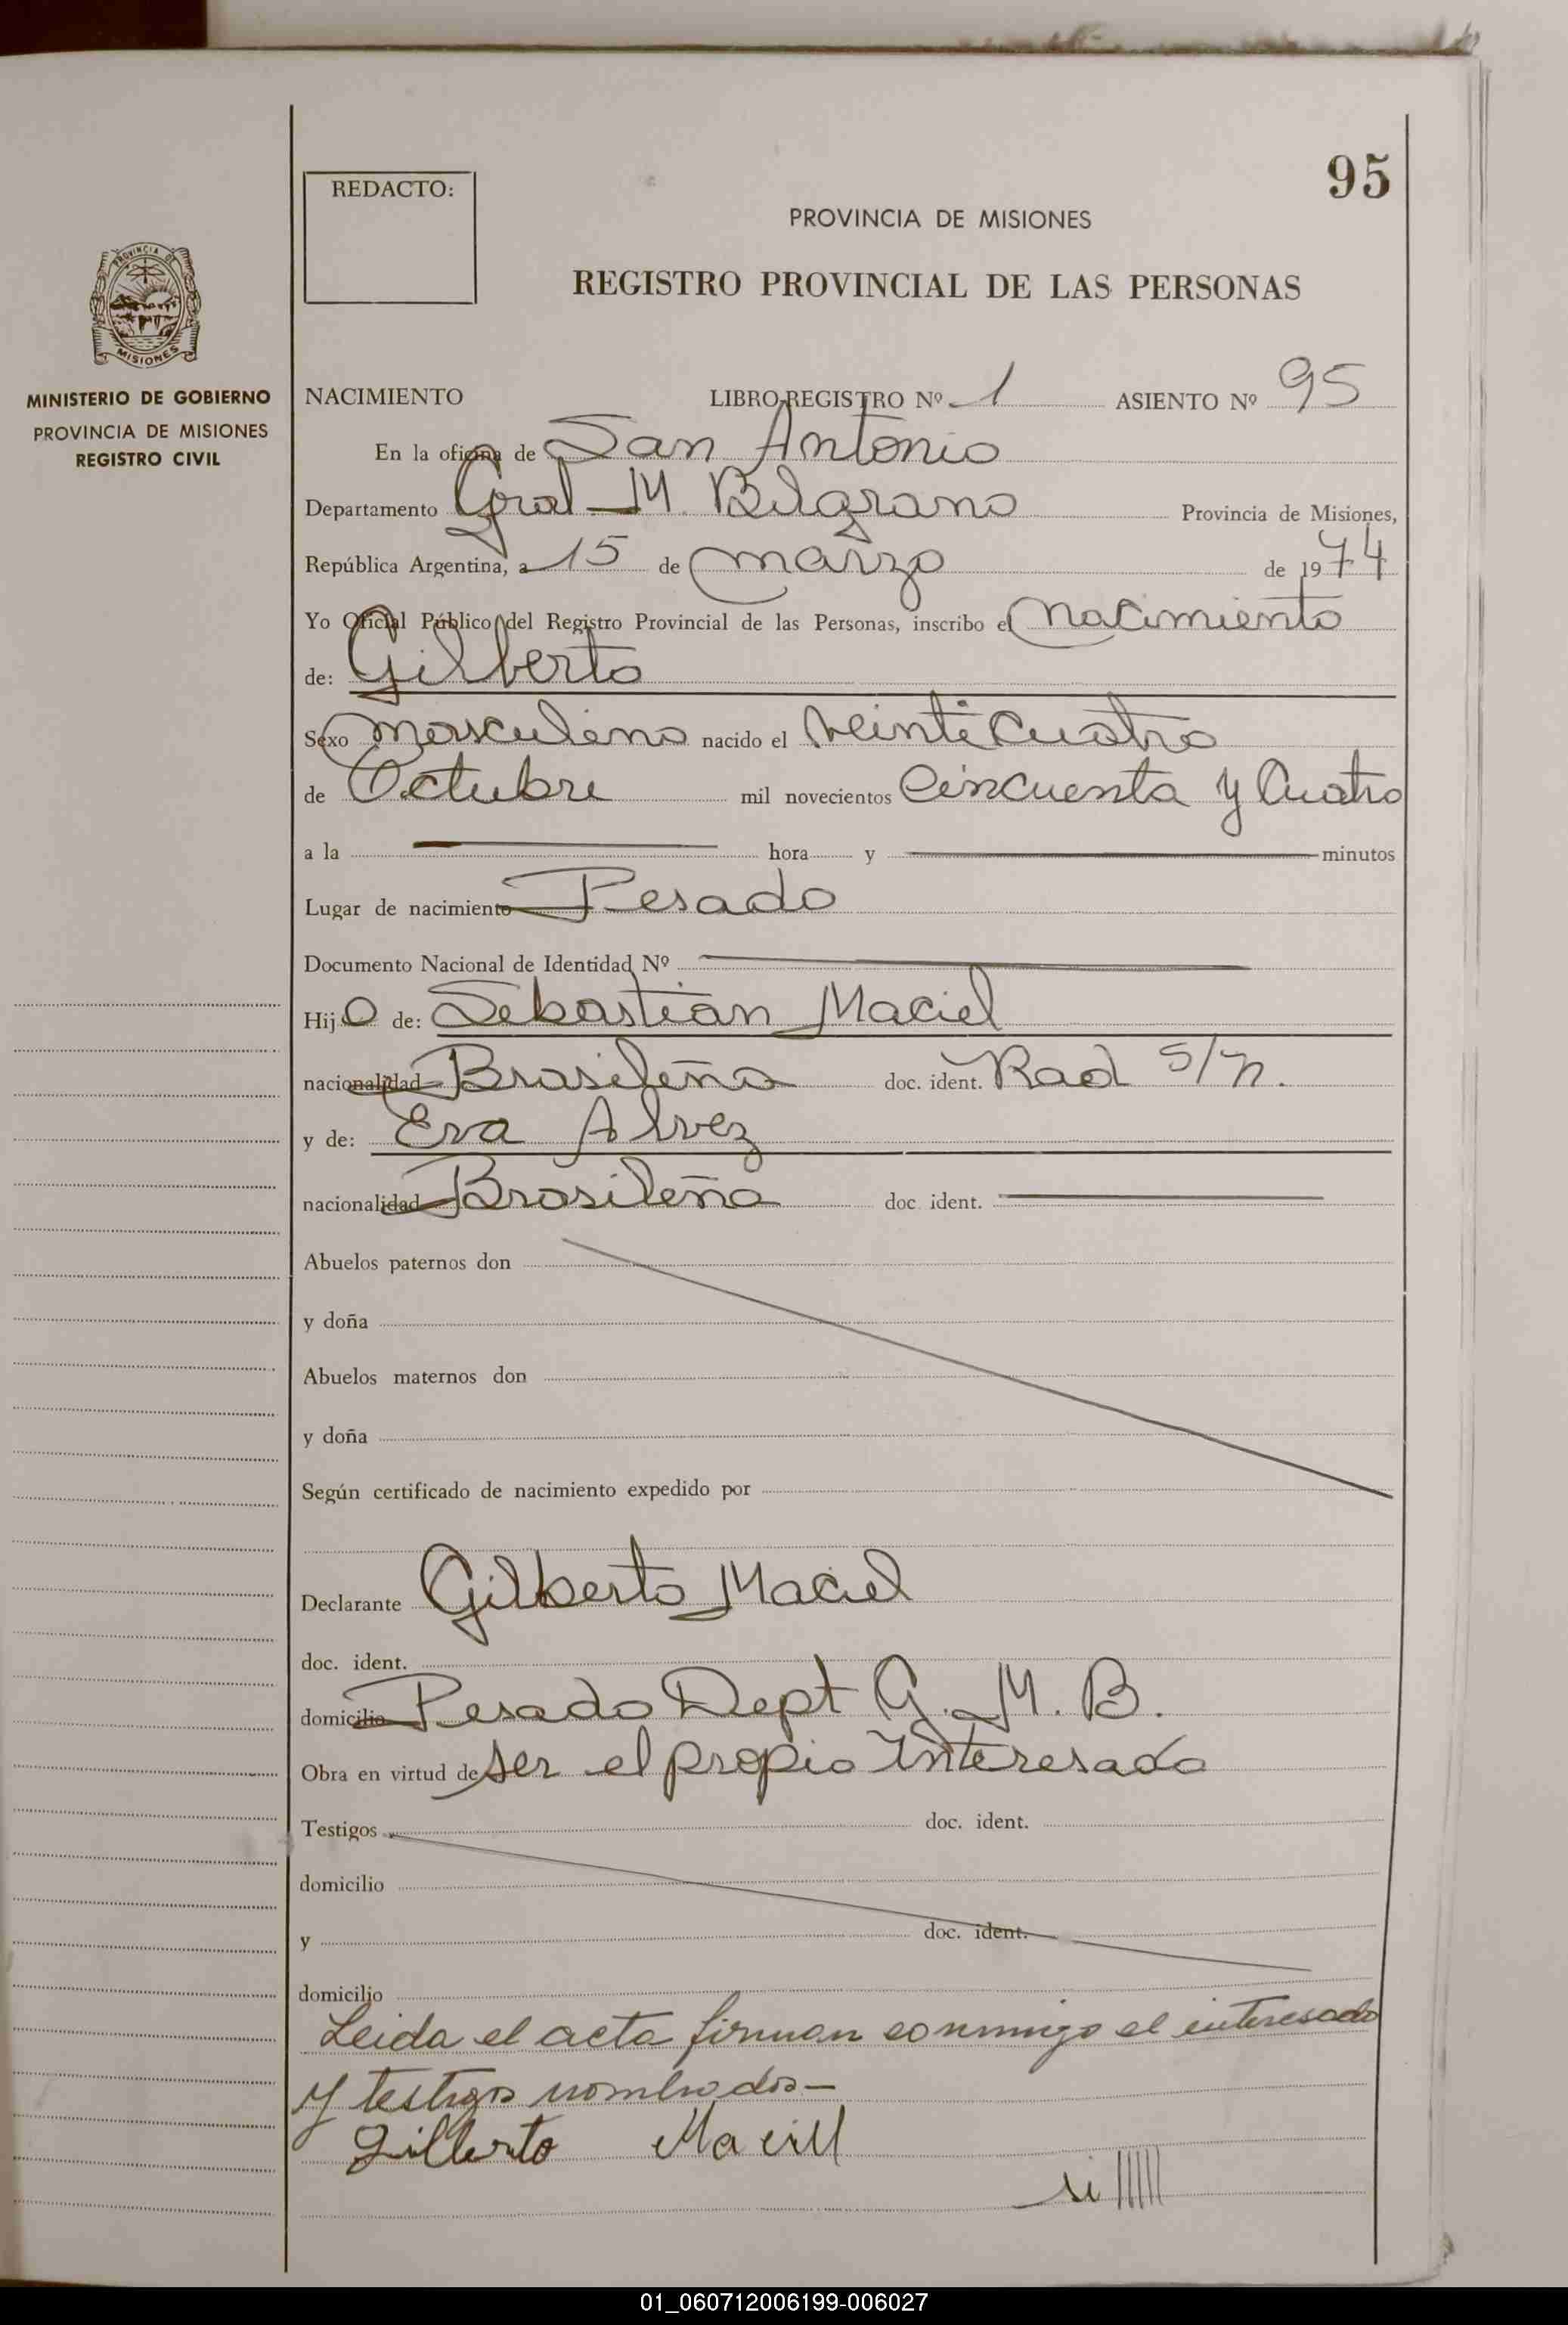 95
REDACTO:
PROVINCIA DE MISIONES
REGISTRO PROVINCIAL DE LAS PERSONAS
PROVINCIA DE
MISIONES
MINISTERIO DE GOBIERNO
PROVINCIA DE MISIONES
REGISTRO CIVIL
NACIMIENTO LIBRO REGISTRO Nº 1 ASIENTO Nº 95
En la oficina de San Antonio
Departamento Gral M. Belgrano Provincia de Misiones,
República Argentina, a 15 de marzo de 1974
Yo Oficial Público del Registro Provincial de las Personas, inscribo el Nacimiento
de: Gilberto
Sexo masculino nacido el veinticuatro
de Octubre mil novecientos Cincuenta y Cuatro
a la hora y minutos
Lugar de nacimiento Pesado
Documento Nacional de Identidad Nº
Hijo de: Sebastian Maciel
nacionalidad Brasileña doc. ident. Rad S/n.
y de: Eva Alvez
nacionalidad Brasileña doc. ident.
Abuelos paternos don
y doña
Abuelos maternos don
y doña
Según certificado de nacimiento expedido por
Declarante Gilberto Maciel
doc. ident.
domicilio Pesado Dept G. M. B.
Obra en virtud de ser el propio Interesado
Testigos doc. ident.
domicilio
y doc. ident.
domicilio
Leida el acta firman conmigo el interesado
y testigos nombrados—
Gilberto Maciel
01_060712006199-006027